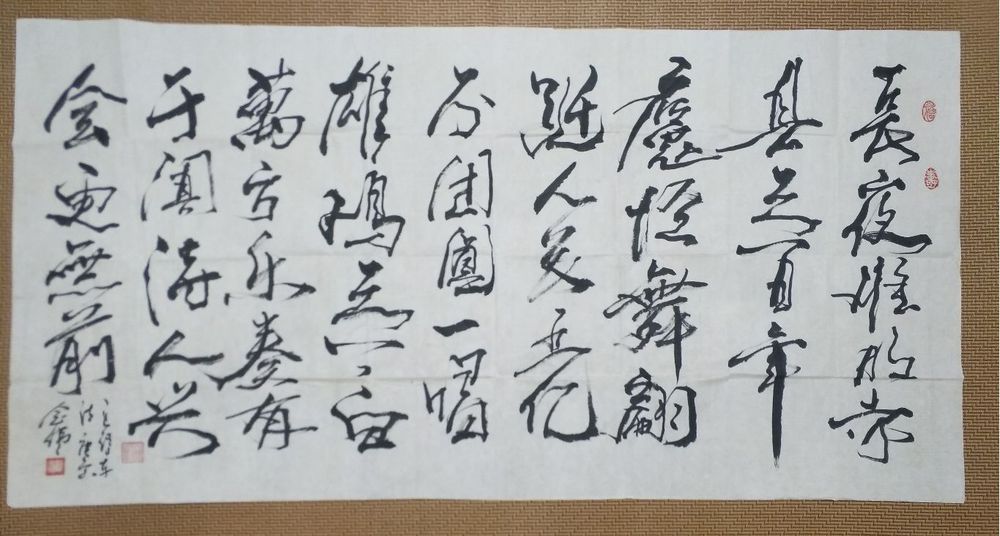 長夜難明赤
县天百年
魔怪舞翩
跹人民五亿
不团圓一唱
雄鸡天下白
萬方乐奏有
于阗诗人兴
会更無前
毛泽东